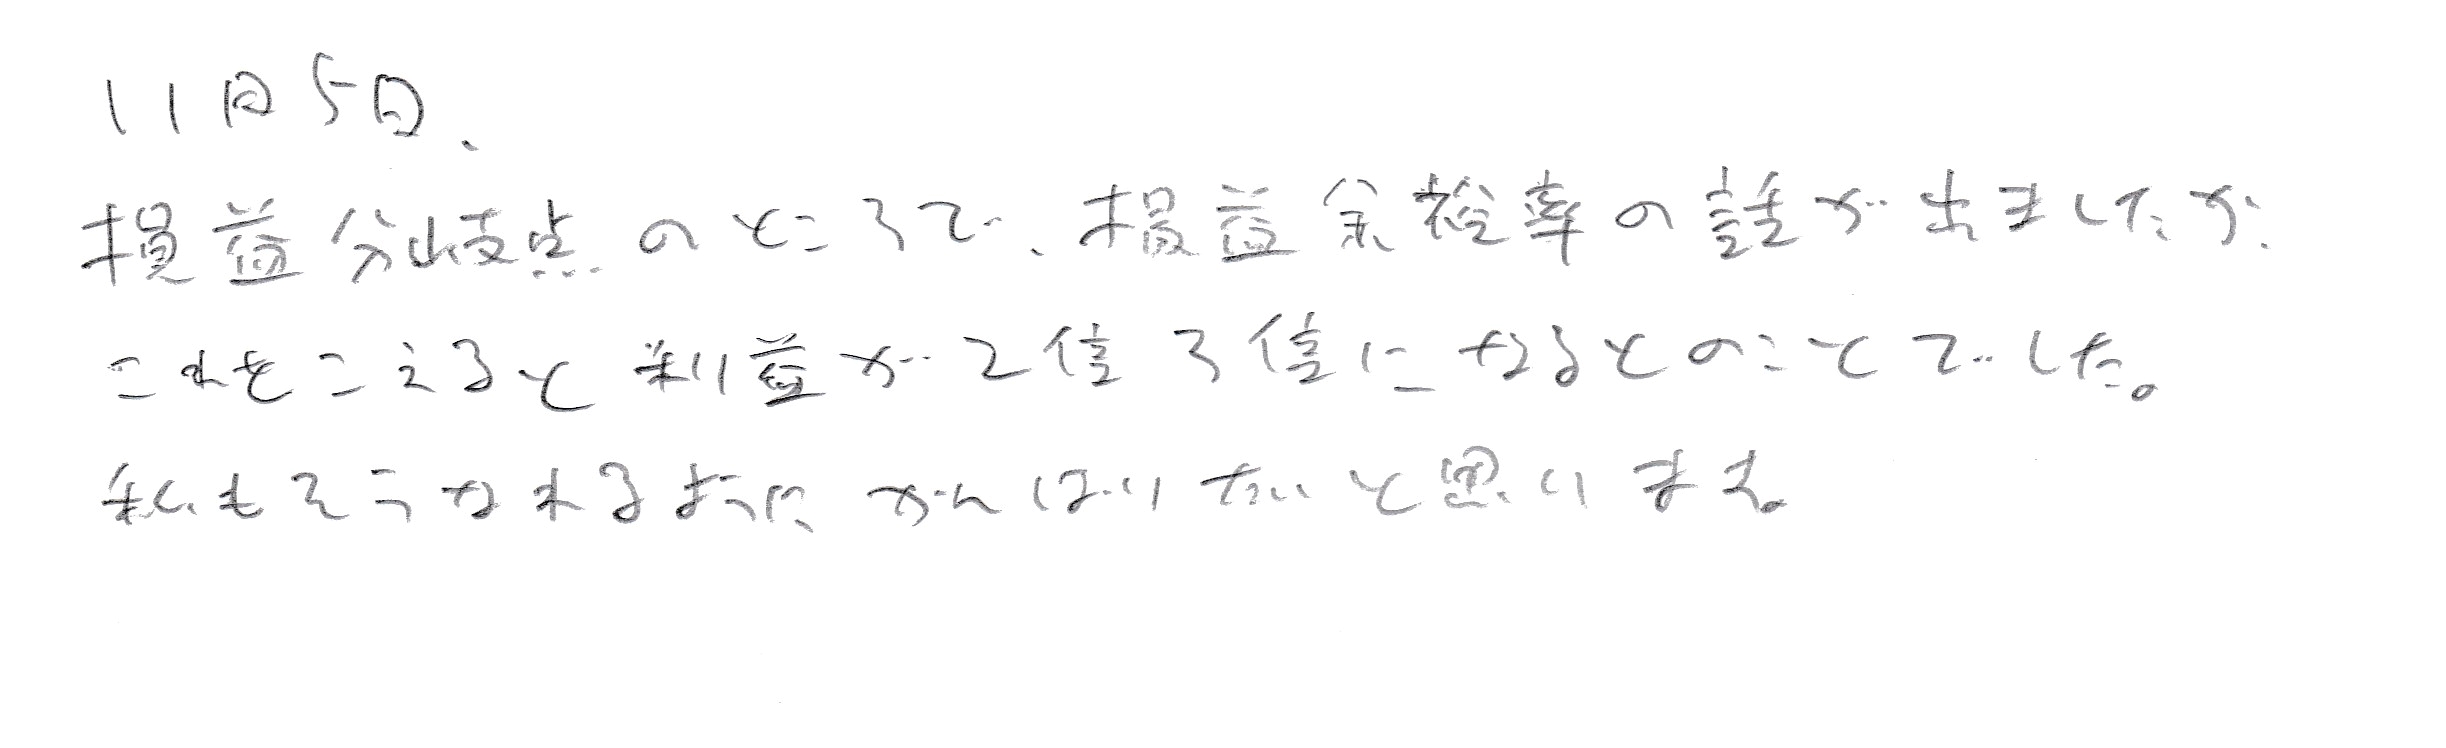 11月5日、
損益分岐点のところで、損益余裕率の話が出ましたが、
これをこえると利益が2倍3倍になるとのことでした。
私もそうなれるようにがんばりたいと思います。